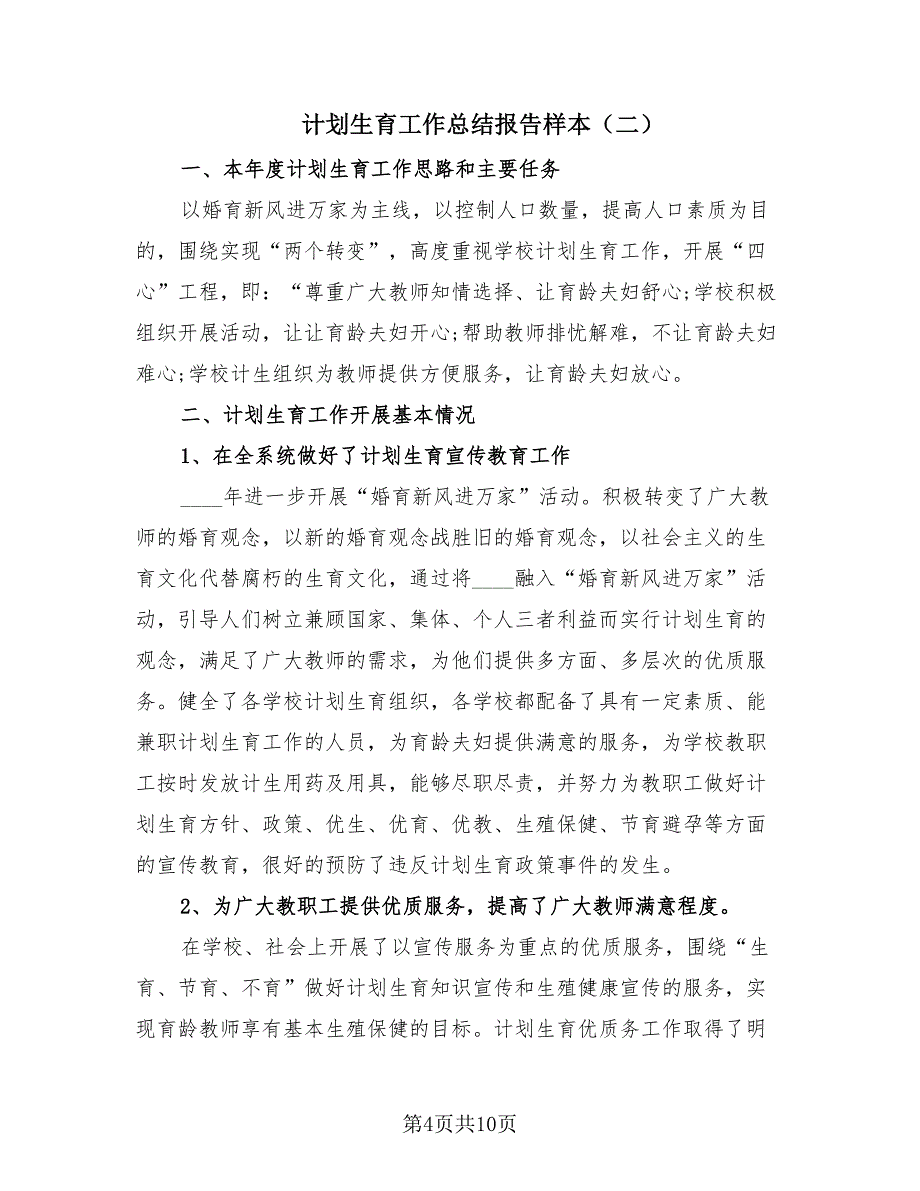 计划生育工作总结报告样本（二）
一、本年度计划生育工作思路和主要任务
以婚育新风进万家为主线，以控制人口数量，提高人口素质为目
的，围绕实现“两个转变”，高度重视学校计划生育工作，开展“四
心”工程，即：“尊重广大教师知情选择、让育龄夫妇舒心;学校积极
组织开展活动，让让育龄夫妇开心;帮助教师排忧解难，不让育龄夫妇
难心;学校计生组织为教师提供方便服务，让育龄夫妇放心。
二、计划生育工作开展基本情况
1、在全系统做好了计划生育宣传教育工作
____年进一步开展“婚育新风进万家”活动。积极转变了广大教
师的婚育观念，以新的婚育观念战胜旧的婚育观念，以社会主义的生
育文化代替腐朽的生育文化，通过将____融入“婚育新风进万家”活
动，引导人们树立兼顾国家、集体、个人三者利益而实行计划生育的
观念，满足了广大教师的需求，为他们提供多方面、多层次的优质服
务。健全了各学校计划生育组织，各学校都配备了具有一定素质、能
兼职计划生育工作的人员，为育龄夫妇提供满意的服务，为学校教职
工按时发放计生用药及用具，能够尽职尽责，并努力为教职工做好计
划生育方针、政策、优生、优育、优教、生殖保健、节育避孕等方面
的宣传教育，很好的预防了违反计划生育政策事件的发生。
2、为广大教职工提供优质服务，提高了广大教师满意程度。
在学校、社会上开展了以宣传服务为重点的优质服务，围绕“生
育、节育、不育”做好计划生育知识宣传和生殖健康宣传的服务，实
现育龄教师享有基本生殖保健的目标。计划生育优质务工作取得了明
第4页共10页